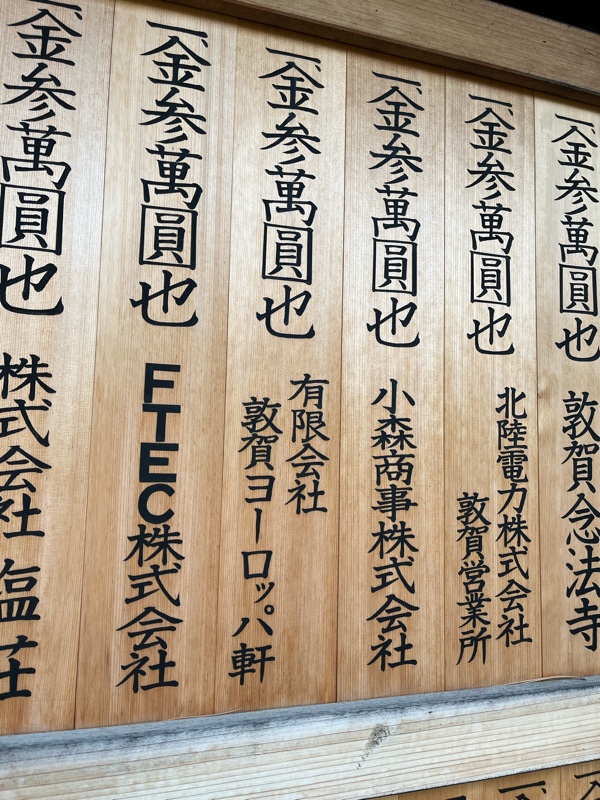 一金参萬圓也 敦賀念法寺
一金参萬圓也 北陸電力株式会社
敦賀営業所
一金参萬圓也 小森商事株式会社
一金参萬圓也 有限会社
敦賀ヨーロッパ軒
一金参萬圓也 FTEC株式会社
一金参萬圓也 株式会社 塩荘